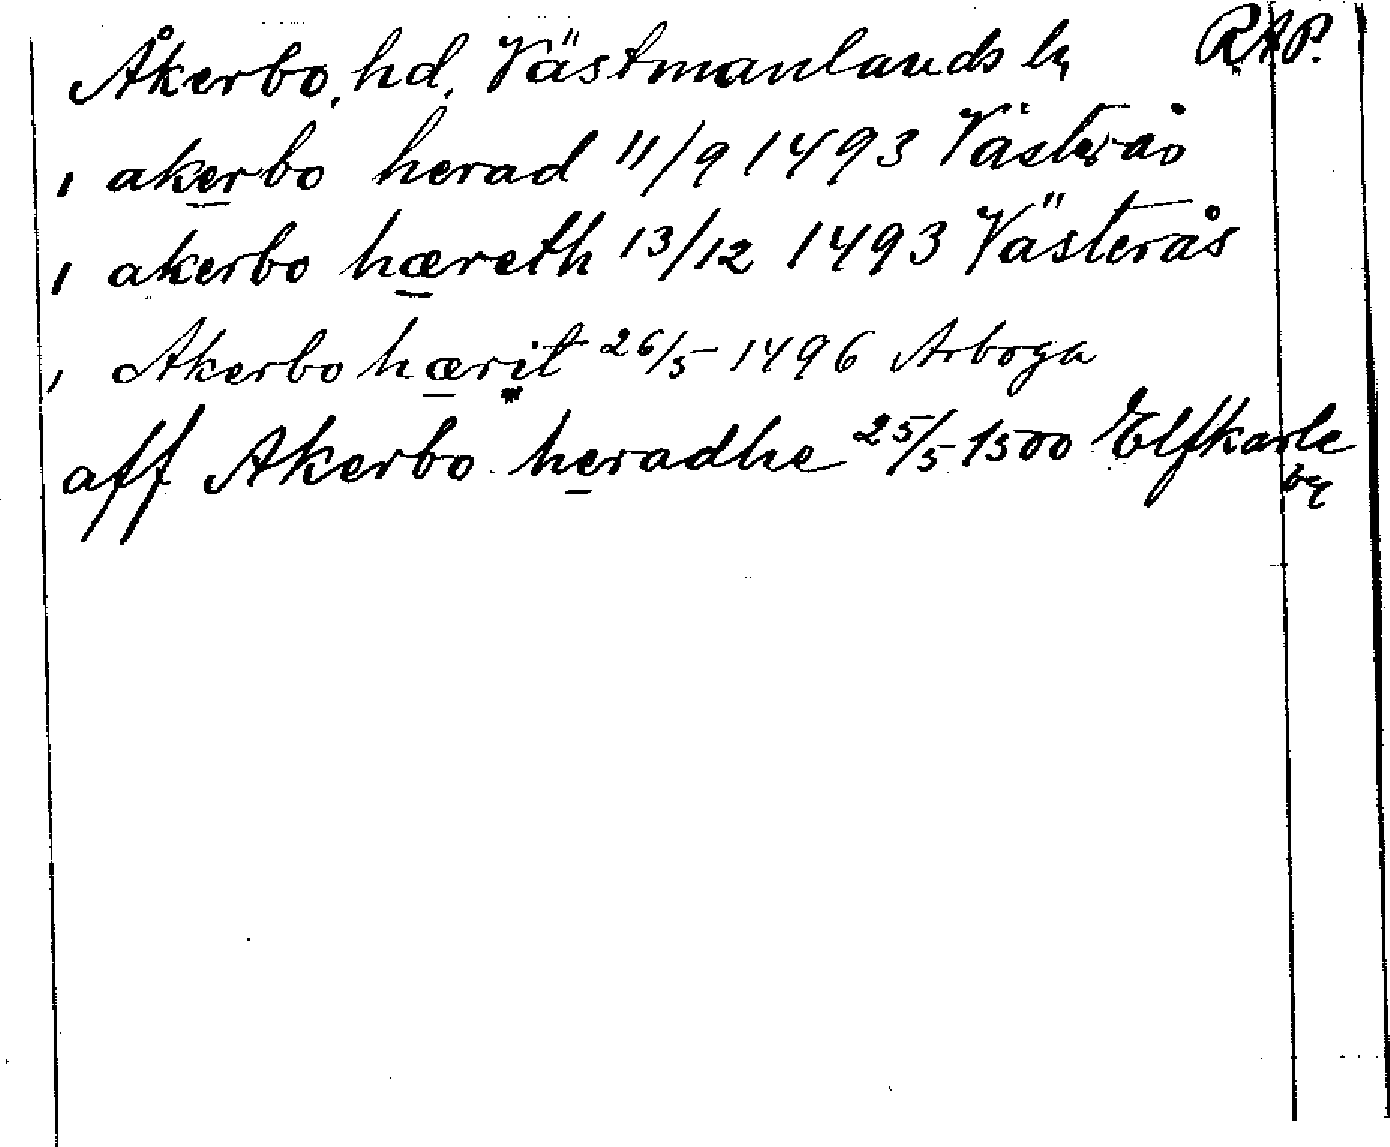 Åkerbo, hd, Västmanlands ln RAP.
i akerbo herad 11/9 1493 Västerås
i akerbo hæreth 13/12 1493 Västerås
i Akerbo hærit 26/5 1496 Arboga
aff Akerbo heradhe 25/5 1500 Elfkarle
by